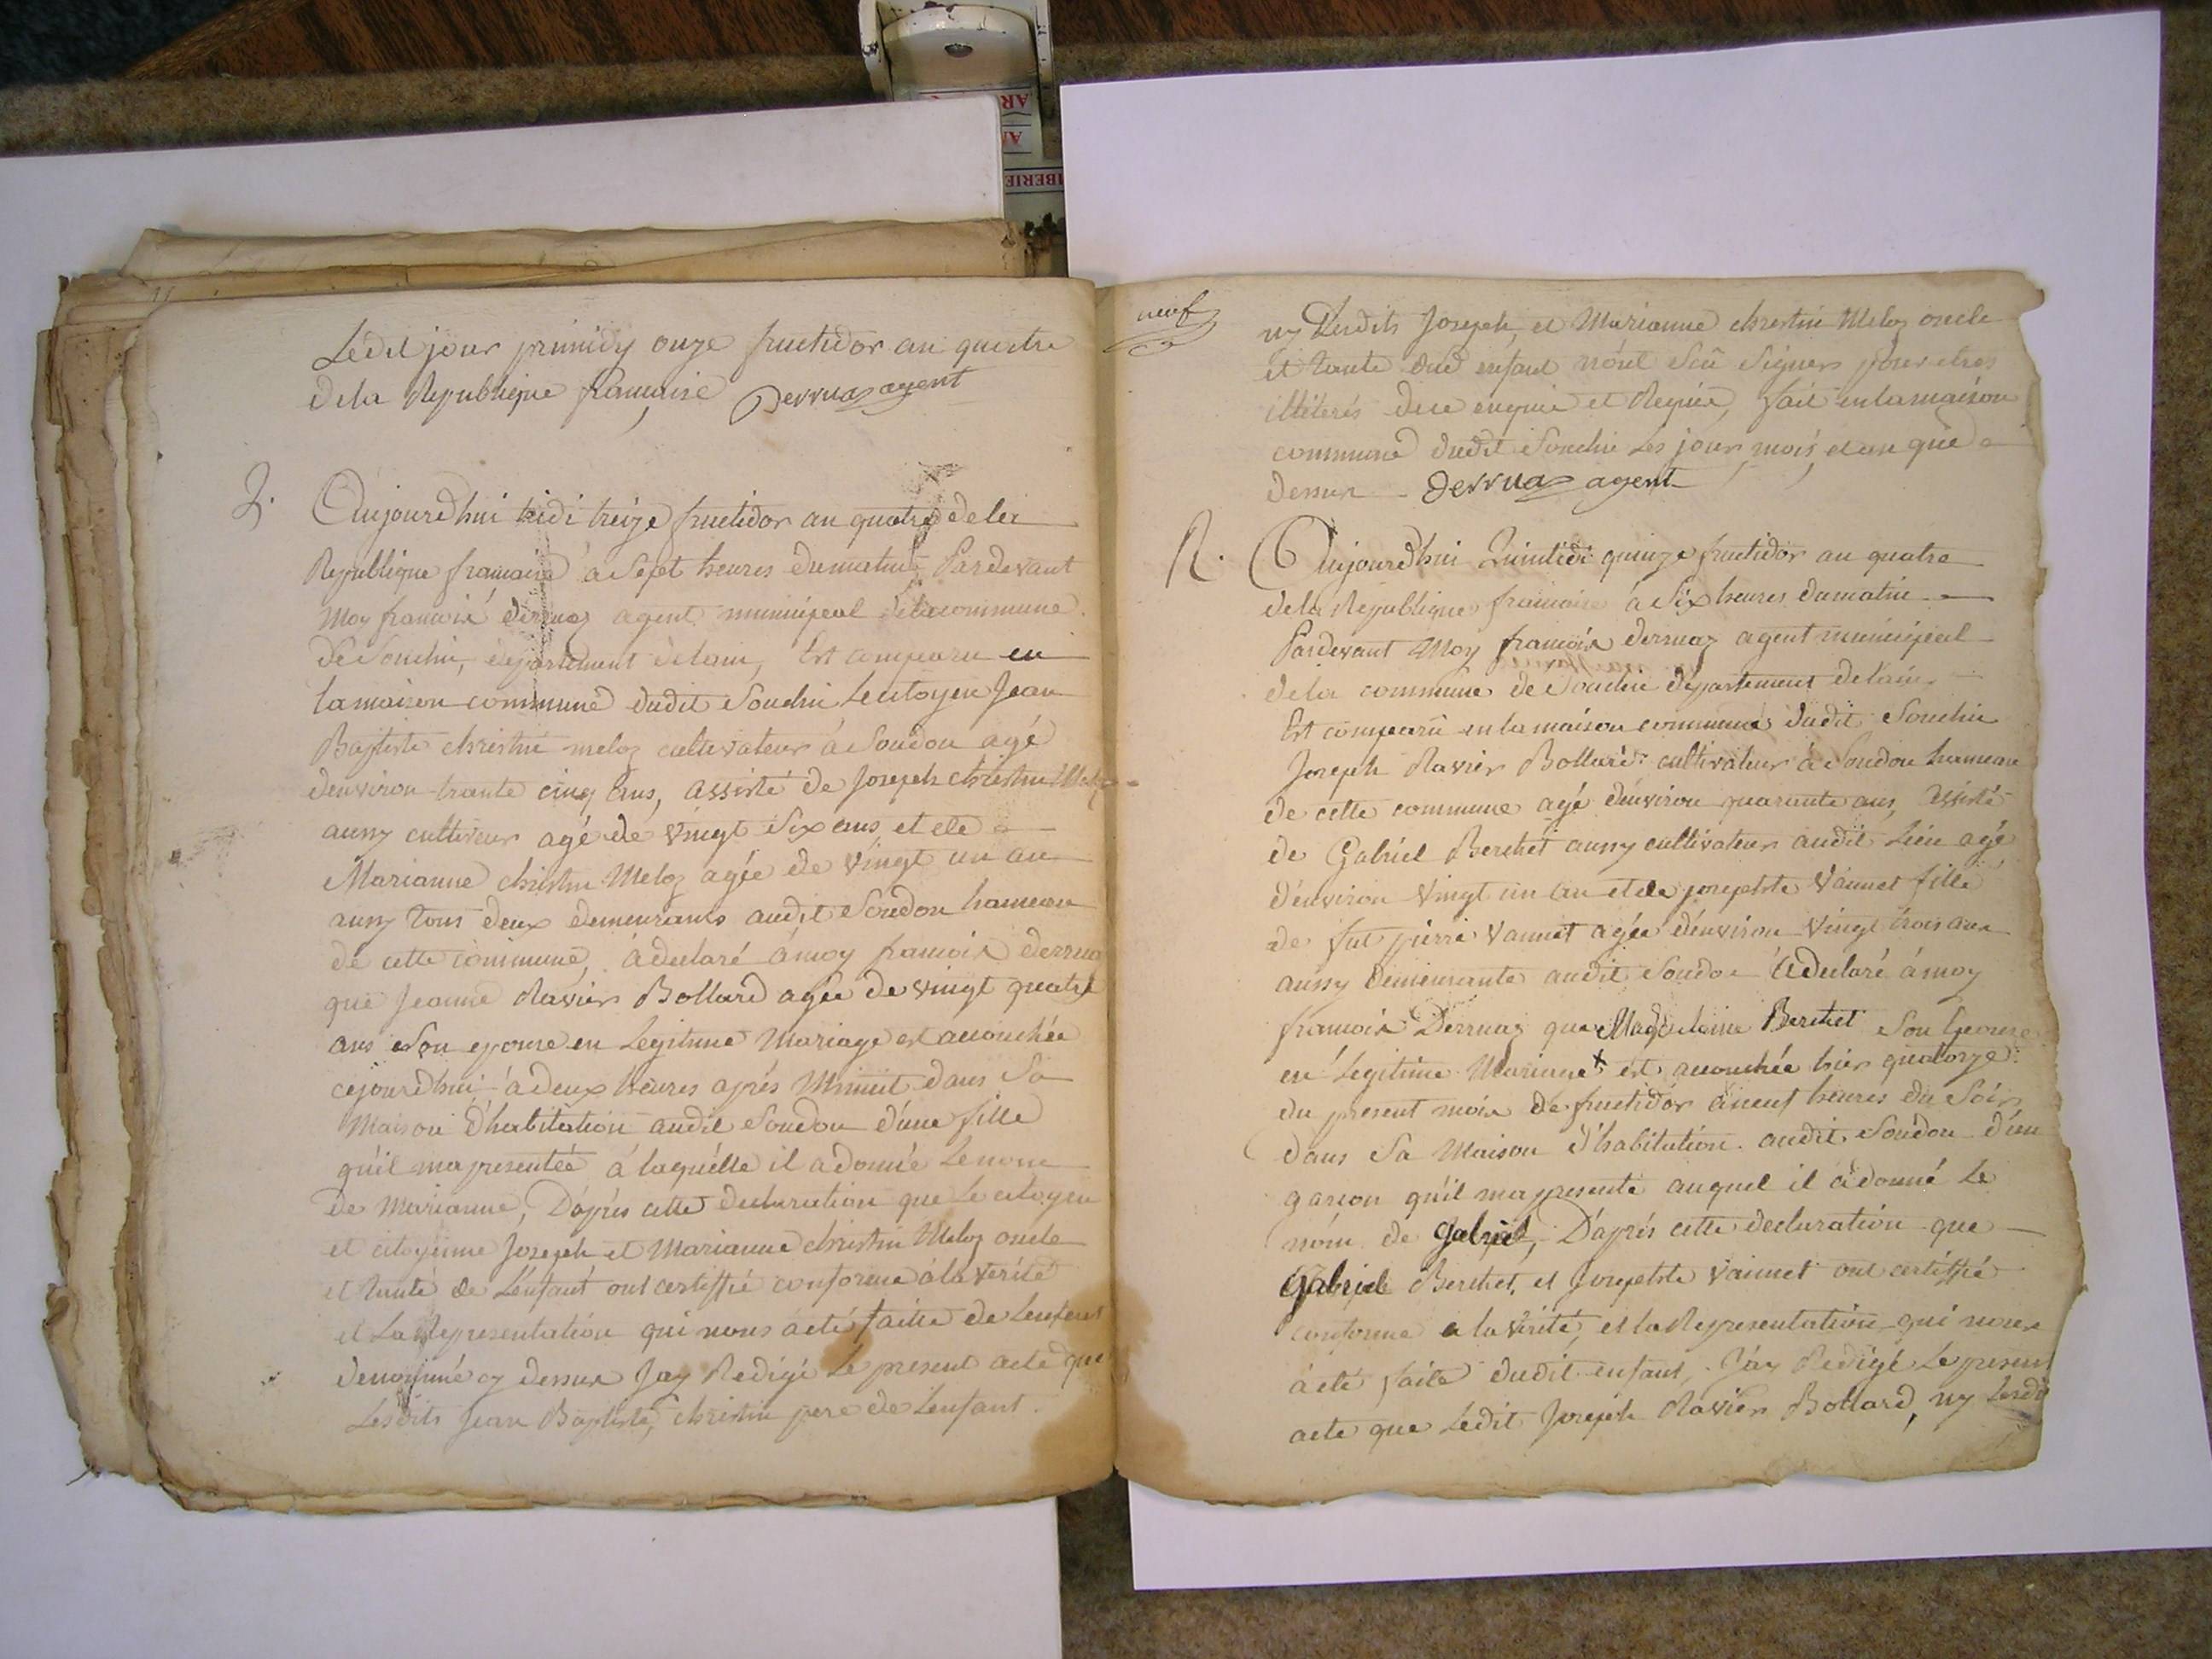 Ledit jour primidy onze fructidor an quatre
de la Republique francaise Derruaz agent
2. Aujourdhui tridi treize fructidor an quatre de la
Republique francaise à Sept heures dumatin, Pardevant
Moy francois derruaz agent municipal delacommune
de Souclin, departement delain, Est comparu en
lamaison commune dudit Souclin Lecitoyen Jean
Baptiste christin meloz cultivateur à Soudon agé
denviron trante cinq ans, assisté de Joseph christin Meloz
aussy cultiveur agé de vingt Six ans et de
Marianne christin Meloz agée de vingt un an
aussy tous deux demeurants audit Soudon hameau
de cette commune, à declaré à moy francois derruaz
que Jeanne Ravier Bollard agée de vingt quatre
ans Son epouse en Legitime Mariage est accouchée
cejourdhui à deux heures aprés Minuit dans Sa
Maison d'habitation audit Soudon d'une fille
qu'il ma presentée à laquélle il a donnée Lenom
de Marianne, D'aprés cette declaration que Le citoyen
et citoyenne Joseph et Marianne christin Meloz oncle
et tante de L'enfant ont certiffié conforme à la verité
et La Representation qui nous àeté faitte de Lenfent
denommé cy dessus Jay Redigé Le present acte que
Lesdits Jean Baptiste, christin pere de Lenfant.
neuf
ny Lesdits Joseph, et Marianne christin Meloz oncle
et tante dud enfant n'ont Scû Signer pour etres
illiterés de ce enquis et Requis, fait en la maison
commune dudit Souclin Les jour, mois, et an que
dessus Derruaz agent
R. Aujourdhui Quintidi quinze fructidor an quatre
dela Republique francaise à Six heures dumatin
Pardevant Moy francois derruaz agent municipal
dela commune de Souclin departement delain
Est comparû en la maison commune dudit Souclin
Joseph Ravier Bollard cultivateur à Soudon hameau
de cette commune agé d'environ quarante ans, assisté
de Gabriel Berchet aussy cultivateur audit Lieu agé
d'environ vingt un an et de josephte Vannet fille
de fut pierre Vannet agée d'environ vingt trois ans
aussy demeurante audit Soudon à declaré à moy
francois Derruaz que Magdelaine Berchet Son Epouse
en Legitime Mariage est accouchée hier quatorze
du present mois de fructidor à neuf heures du Soir
dans Sa Maison d'habitation audit Soudon d'un
garcon qu'il ma presenté auquel il à donné Le
nom de Gabriel, D'aprés cette declaration que
Gabriel Berchet, et Josephte Vannet ont certiffié
conforme a la vérité, et la Representation qui nous
à eté faite dudit enfant, J'ay Redigé Le present
acte que Ledit Joseph Ravier Bollard, ny Lesdit